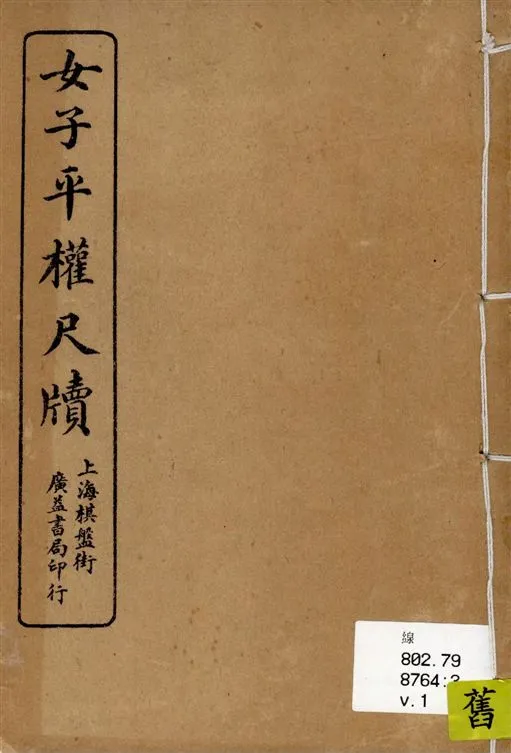 女子平權尺牘
上海棋盤街
廣益書局印行
線
802.79
8764:3
v.1
舊